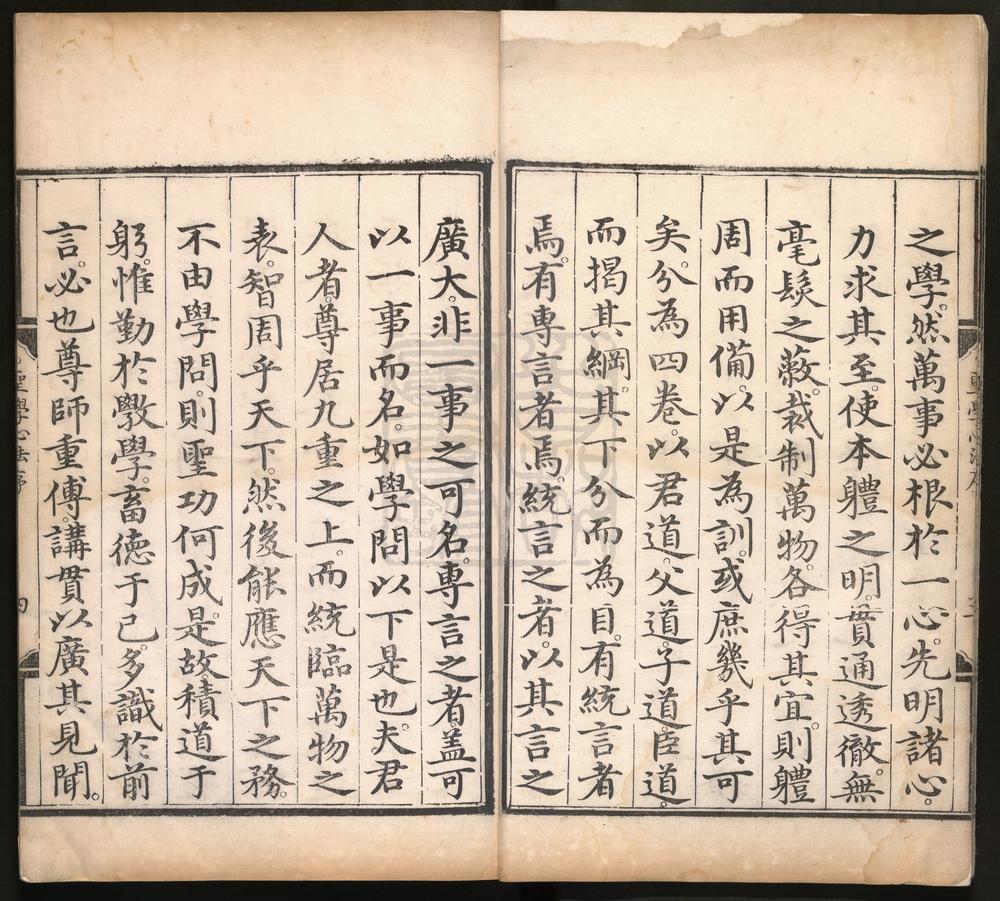 之學。然萬事必根於一心。先明諸心。
力求其至。使本體之明。貫通透徹。無
毫髮之蔽。裁制萬物。各得其宜。則體
周而用備。以是為訓。或庶幾乎其可
矣。分為四卷。以君道。父道。子道。臣道。
而揭其綱。其下分而為目。有統言者
焉。有專言者焉。統言之者。以其言之
廣大。非一事之可名。專言之者。蓋可
以一事而名。如學問以下是也。夫君
人者。尊居九重之上。而統臨萬物之
表。智周乎天下。然後能應天下之務。
不由學問。則聖功何成。是故積道于
躬。惟勤於斆學。畜德于己。多識於前
言。必也尊師重傅。講貫以廣其見聞。
聖學心法序